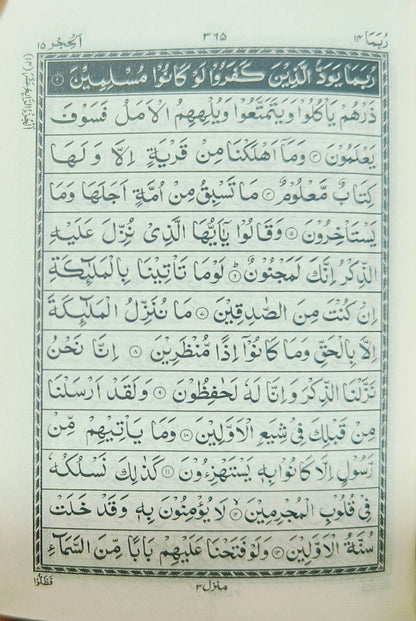 رُبَمَا ١٤ ٣٦٥ اَلْحِجْر ١٥
رُبَمَا يَوَدُّ الَّذِيْنَ كَفَرُوْا لَوْ كَانُوْا مُسْلِمِيْنَ ۝٢
ذَرْهُمْ يَاْكُلُوْا وَيَتَمَتَّعُوْا وَيُلْهِهِمُ الْاَمَلُ فَسَوْفَ
يَعْلَمُوْنَ ۝٣ وَمَاۤ اَهْلَكْنَا مِنْ قَرْيَةٍ اِلَّا وَلَهَا
كِتَابٌ مَّعْلُوْمٌ ۝٤ مَا تَسْبِقُ مِنْ اُمَّةٍ اَجَلَهَا وَمَا
يَسْتَاْخِرُوْنَ ۝٥ وَقَالُوْا يٰۤاَيُّهَا الَّذِىْ نُزِّلَ عَلَيْهِ
الذِّكْرُ اِنَّكَ لَمَجْنُوْنٌ ۝٦ لَوْمَا تَاْتِيْنَا بِالْمَلٰٓئِكَةِ
اِنْ كُنْتَ مِنَ الصّٰدِقِيْنَ ۝٧ مَا نُنَزِّلُ الْمَلٰٓئِكَةَ
اِلَّا بِالْحَقِّ وَمَا كَانُوْۤا اِذًا مُّنْظَرِيْنَ ۝٨ اِنَّا نَحْنُ
نَزَّلْنَا الذِّكْرَ وَاِنَّا لَهٗ لَحٰفِظُوْنَ ۝٩ وَلَقَدْ اَرْسَلْنَا
مِنْ قَبْلِكَ فِىْ شِيَعِ الْاَوَّلِيْنَ ۝١٠ وَمَا يَاْتِيْهِمْ مِّنْ
رَّسُوْلٍ اِلَّا كَانُوْا بِهٖ يَسْتَهْزِءُوْنَ ۝١١ كَذٰلِكَ نَسْلُكُهٗ
فِىْ قُلُوْبِ الْمُجْرِمِيْنَ ۝١٢ لَا يُؤْمِنُوْنَ بِهٖ وَقَدْ خَلَتْ
سُنَّةُ الْاَوَّلِيْنَ ۝١٣ وَلَوْ فَتَحْنَا عَلَيْهِمْ بَابًا مِّنَ السَّمَآءِ
منزل ٣ فَظَلُّوْا